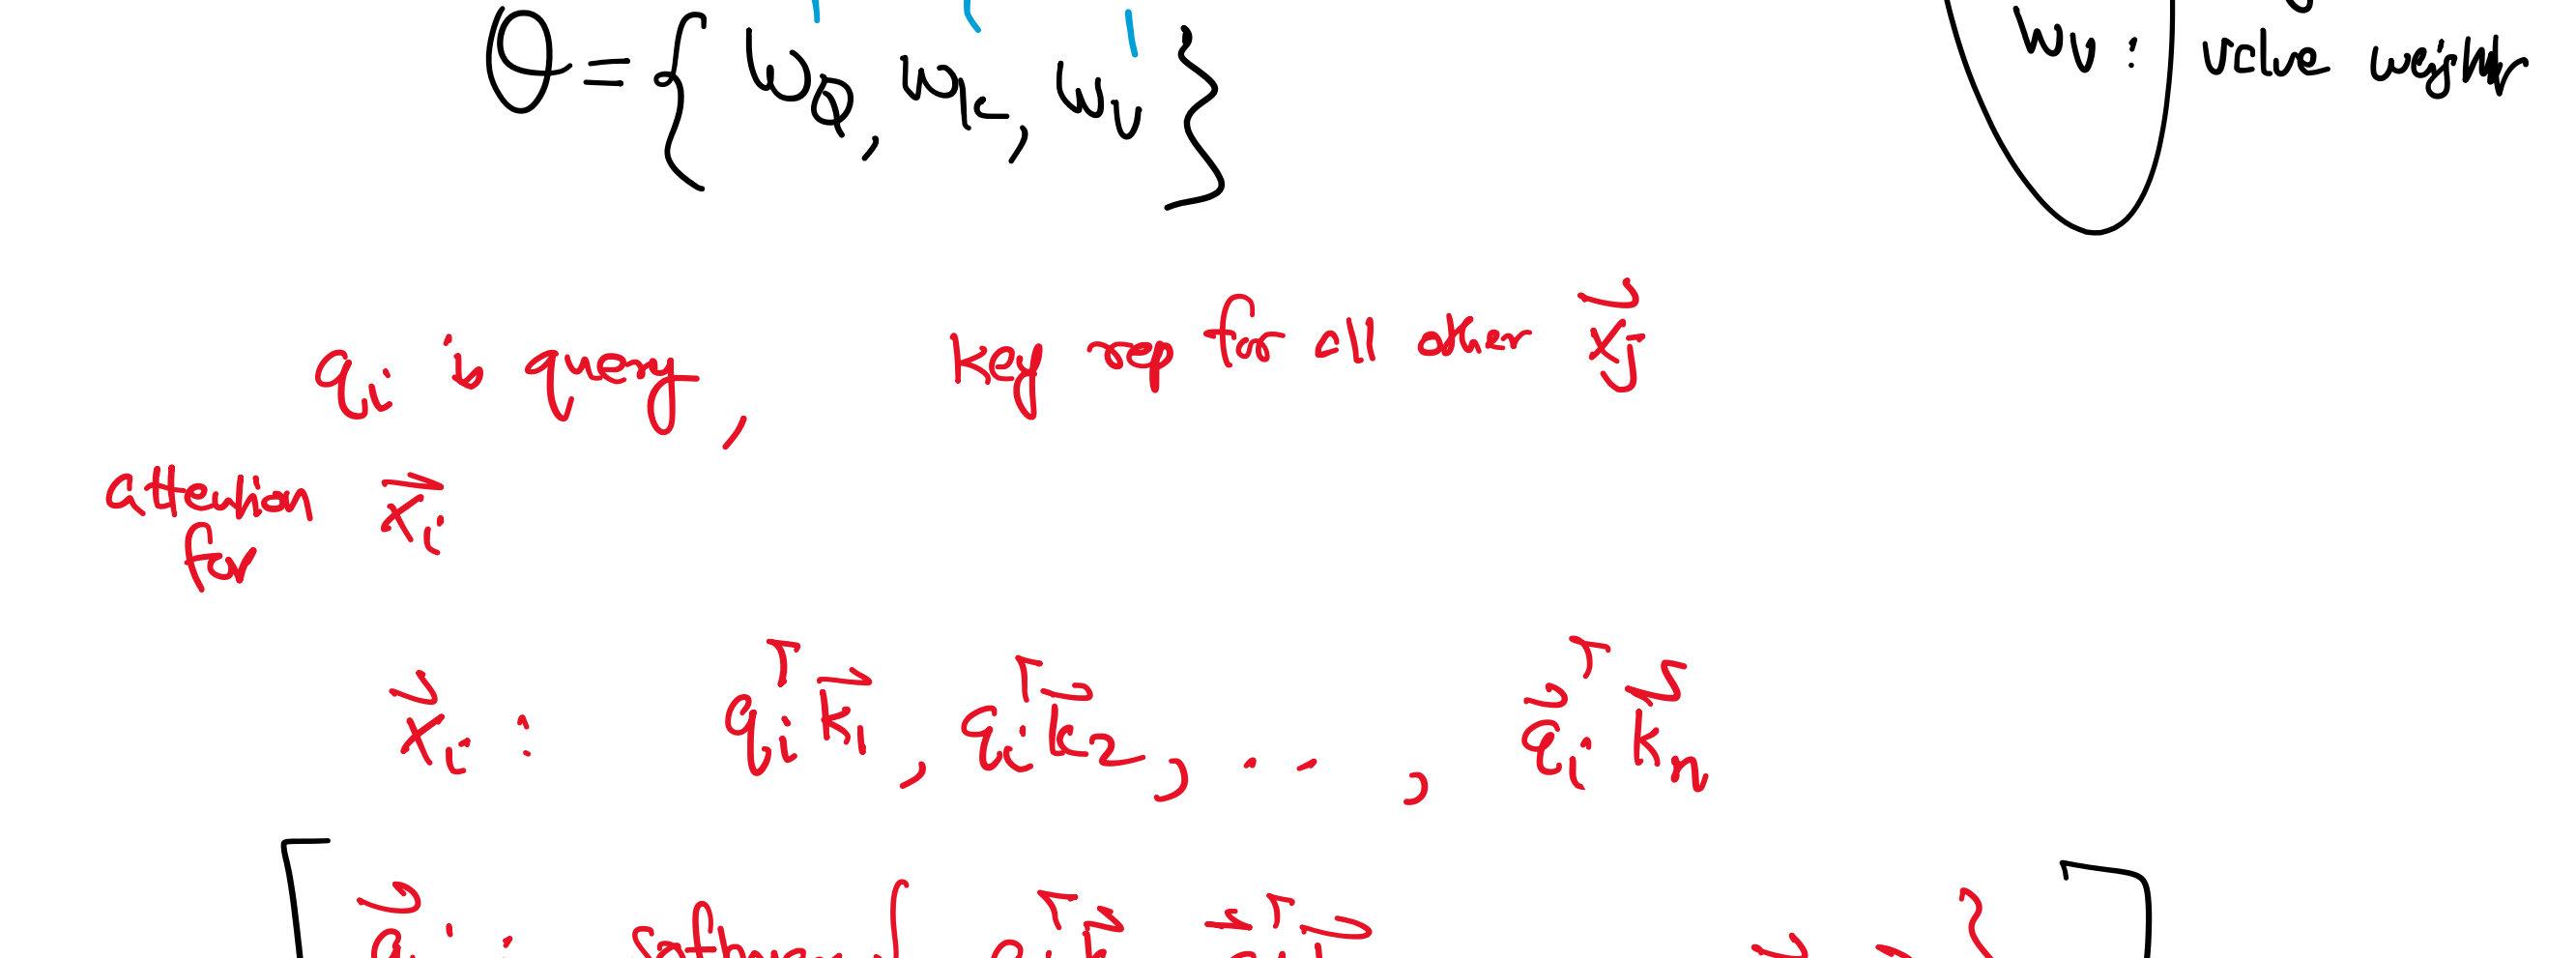 θ = { W_Q, W_K, W_V }
W_V : value weights
q_i is query, key rep for all other x⃗_j
attention for x⃗_i
x⃗_i : q_i^T k⃗_1, q_i^T k⃗_2, ..., q⃗_i^T k⃗_n